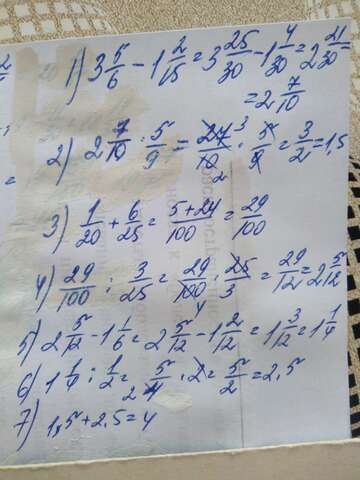 1) 3 5/6 - 1 2/15 = 3 25/30 - 1 4/30 = 2 21/30 =
= 2 7/10
2) 2 7/10 · 5/9 = 27/10 · 5/9 = 3/2 = 1,5
3) 1/20 + 6/25 = 5+24/100 = 29/100
4) 29/100 : 3/25 = 29/100 · 25/3 = 29/12 = 2 5/12
5) 2 5/12 - 1 1/6 = 2 5/12 - 1 2/12 = 1 3/12 = 1 1/4
6) 1 1/4 : 1/2 = 5/4 · 2 = 5/2 = 2,5
7) 1,5 + 2,5 = 4